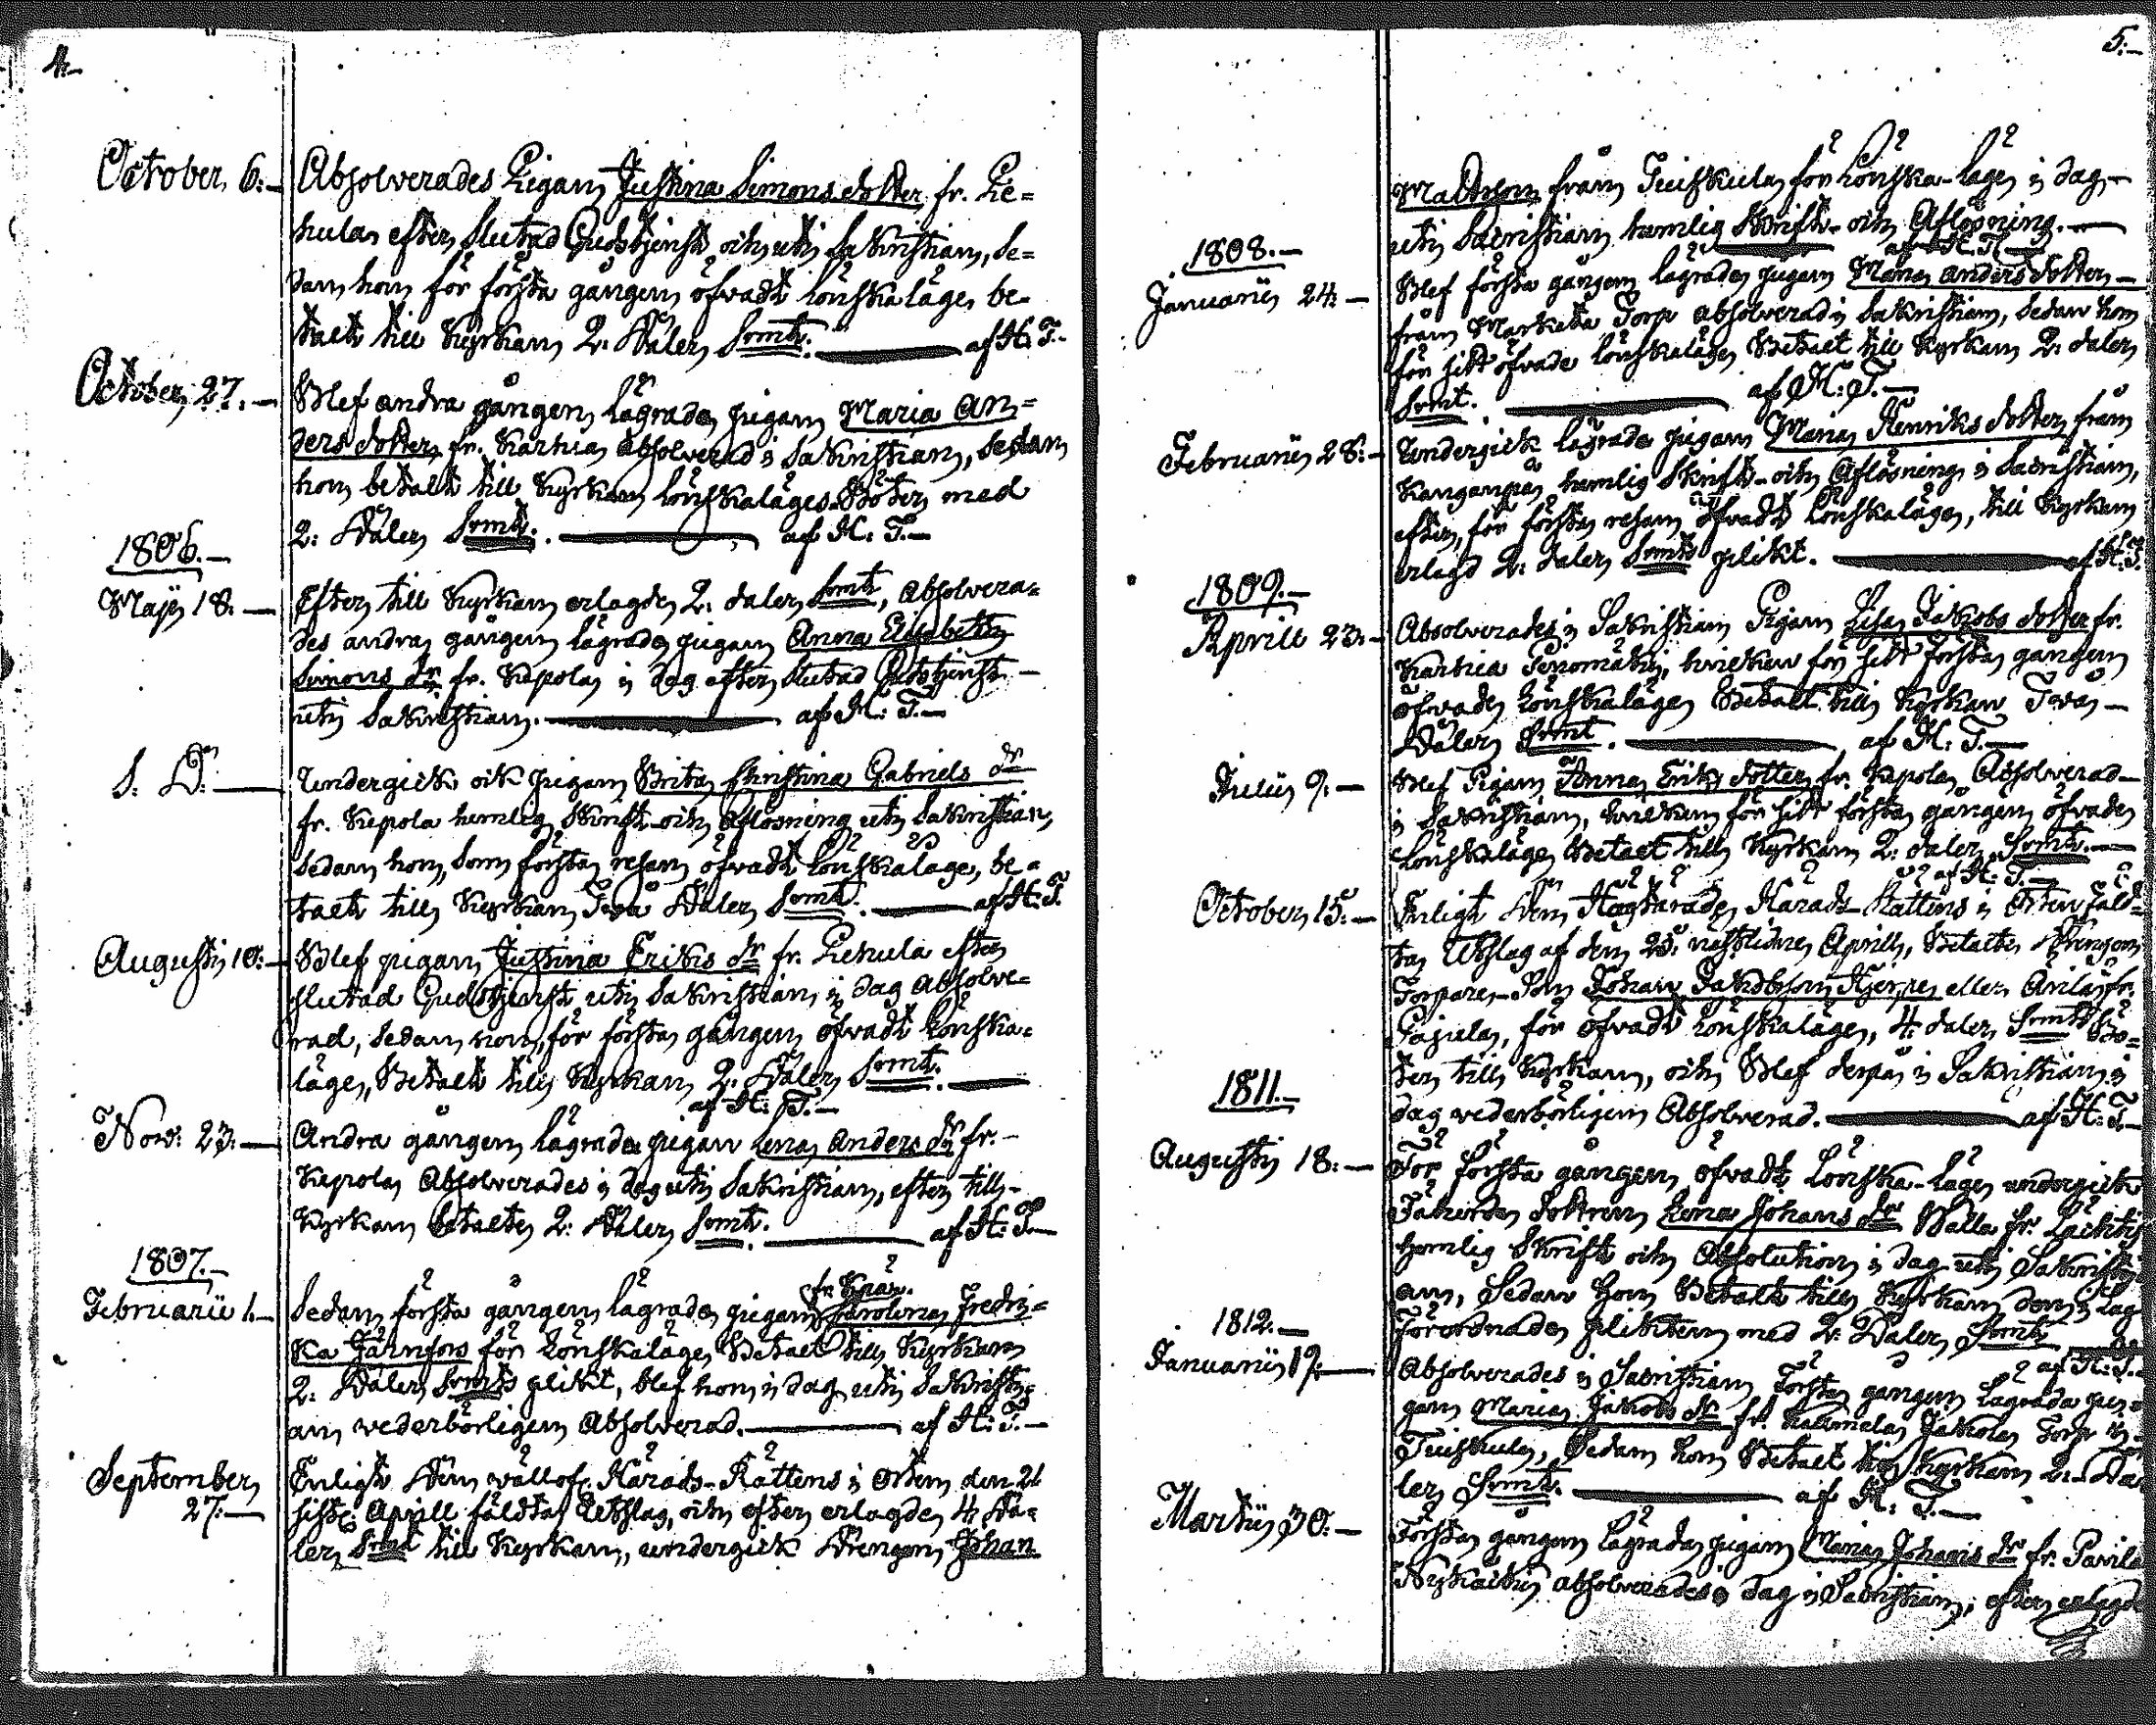 4.
October 6.
Absolverades Pigan Justina Simons dotter fr. Pie=
hula efter slutad Gudstjenst och uti Sakristian, se=
dan hon för första gången öfvadt lönskaläge be-
talt till Kyrkan 2. Daler Srmt. af H. T.
October 27.
Blef andra gången lägrade pigan Maria An=
ders dotter fr. Karhia absolverad i Sakristian, sedan
hon betalt till Kyrkan lönskaläges Böter med
2: Daler Srmt. af H. T.
1806.
Maji 18.
Efter till Kyrkan erlagde 2. daler Srmt, absolvera=
des andra gången lägrade pigan Anna Elisabeth
Simons dr fr. Kepola i dag efter slutad Gudstjenst
uti Sakristian. af H. T.
S. D.
Undergick ock pigan Brita Christina Gabriels dr
fr. Kepola hemlig Skrift- och Aflösning uti Sakristian,
sedan hon, som första resan öfvadt lönskaläge, be=
talt till Kyrkan Två Daler Srmt. af H. T.
Augusti 10.
Blef pigan Justina Eriks dr fr. Piehula efter
slutad Gudstjenst uti Sakristian i dag absolve=
rad, sedan hon, för första gången öfvadt lönska=
läge, Betalt till Kyrkan 2. Daler Srmt.
af H. T.
Nov: 23.
Andra gången lägrade pigan Lena Anders dr fr.
Kepola Absolverades i dag uti Sakristian, efter till
Kyrkan betalte 2: Daler Srmt. af H. T.
1807.
Februarii 1.
Sedan första gången lägrade pigan Carolina Fredri=
ka Järnfors för Lönskaläge Betalt till Kyrkan
2. Daler Srmts plikt, blef hon i dag uti Sakristi=
an vederbörligen Absolverad. af H. T.
September
27.
Enligt Den vällofl. Härads-Rättens i Orten den 21
siste April fäldta Utslag, och efter erlagde 4 Da=
ler Srmt till Kyrkan, undergick Drengen Johan
5.
Mattsson från Tuiskula för Lönska-läge i dag
uti Sacristian hemlig Skrift- och Aflösning.
af H. T.
1808.
Januarii 24.
Blef första gången lägrade pigan Maria Anders dotter
från Marketa Torp absolverad i Sakristian, sedan hon
för sitt öfvade lönskaläge Betalt till Kyrkan 2. daler
Srmt. af H. T.
Februarii 28.
Undergick lägrade pigan Maria Henriks dotter från
Kanganpää hemlig Skrift- och Aflösning i Sacristian,
efter, för första resan öfvadt Lönskaläge, till Kyrkan
erlagd 2. daler Srmts plikt. af H. T.
1809.
Aprill 23.
Absolverades i Sakristian Pigan Lisa Jakobs dotter fr.
Karhia hvilken för sitt första gången
öfvade Lönskaläge Betalt till Kyrkan Två
Daler Srmt. af H. T.
Julii 9.
Blef Pigan Anna Eriks dotter fr. Kepola Absolverad
i Sakristian, hvilken för sitt första gången öfvade
Lönskaläge Betalt till Kyrkan 2. daler Srmt.
af H. T.
October 15.
Enligt Den Härads-Rättens i Orten fäld=
ta Utslag af den 25. nästlidne Aprill, Betalte Drengen
Torpare-Son Johan Jakobsson fr.
för öfvadt Lönskaläge, 4. daler Srmt Bö=
ter till Kyrkan, och Blef derpå i Sakristian i
dag vederbörligen Absolverad. af H. T.
1811.
Augusti 18.
För första gången öfvadt Lönska-läge undergick
dottren Lena Johans dr fr.
hemlig Skrift och Absolution i dag uti Sakristi
an, sedan hon Betalt till Kyrkan den i Lag
förordnade plikten med 2. Daler Srmt
af H. T.
1812.
Januarii 19.
Absolverades i Sacristian första gången lägrade pi=
gan Maria Jakobs dr fr. Torp
Tuiskula, sedan hon Betalt till Kyrkan 2. Da
ler Srmt. af H. T.
Martii 30.
Första gången lägrade pigan Maria Johans dr fr.
absolverades i dag i Sacristian, efter erlagde